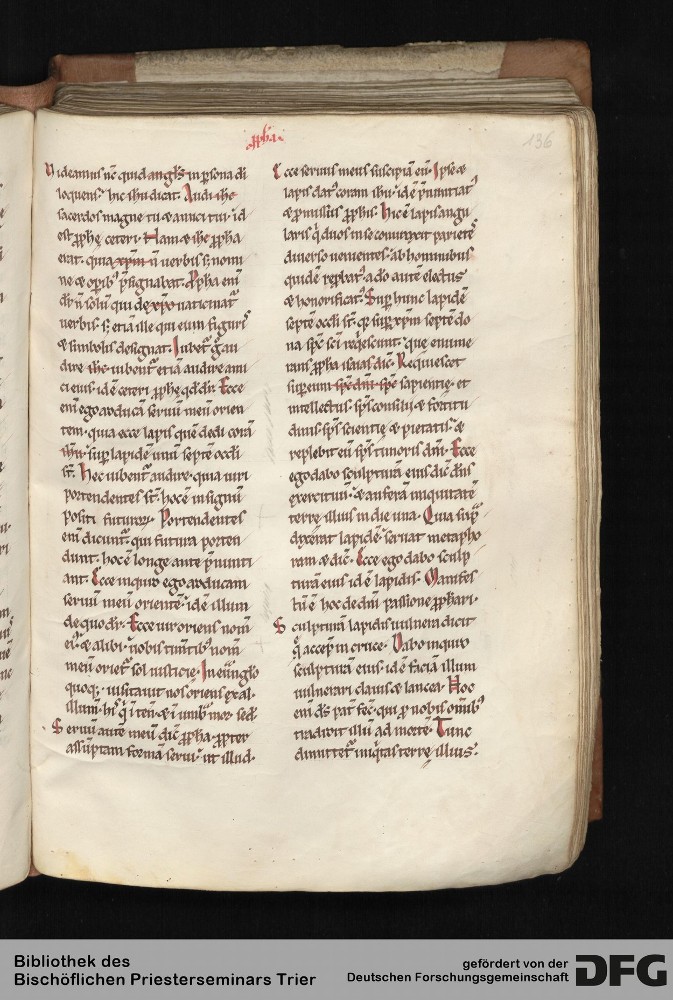 136
Videamus nc̄ quid angl's in p̱sona dī
loquens. hic ihu dicat. Audi ihe
sacerdos magne tu & amici tui. id
est ꝓphę ceteri. Nam & ihe ꝓpha
erat. quia xp̄m n̄ verbis s; nomi
ne & oꝑib' p̄signabat. Ꝓpha eni
dr̄ n̄ solū qui de xp̄o vaticinat'
verbis. s; etiā ille qui eum figuris
& simbolis designat. Iubet' g̊ au
dire ihc iubent' etiā audire ami
ci eius. idē ceteri ꝓphę qd dr̄. Ecce
eni ego adducā seruū meū orien
tem. quia ecce lapis quē dedi corā
ihū. sup̱ lapidē unū septē oculi
st̄. Hec iubent' audire. quia uiri
portendentes st̄. hoc ē in signū
positi futuroꝝ. Portendentes
eni dicunt'. qui futura porten
dunt. hoc ē longe ante p̄nunti
ant. Ecce inquid ego adducam
seruū meū orientē. id ē illum
de quo dr̄. Ecce uir oriens nom̄
ei'. & alibi. uobis timētib' nom̄
meū oriet' sol iusticię. In euḡlo
quoq;. uisitauit nos oriens ex al.
illum. hi' q̇ ī ten̄. & ī umb̄ mor. sed.
Seruū autē meū dic̄ ꝓpha. ꝓpter
assūptam formā serui. ut illud.
Ecce seruus meus suscipiā eū. Ipse &
lapis dat' coram ihū. id ē p̄nuntiat'
& ꝓmissus ꝓphis. Hic ē lapis angu
laris q̇ duos in se coniunxit parietes
diuerso uenientes. ab hominibus
quidē reꝓbat'. a dō autē electus
& honorificat'. Sup̱ hunc lapidē
septē oculi st̄. q̇ sup̱ xp̄m septē do
na sp̄c sc̄i req̇escunt. que enume
rans ꝓpha isaias dic̄. Requiescet
sup̱ eum sp̄c dn̄i sp̄c sapientię. et
intellectus. sp̄s consilij & fortitu
dinis. sp̄s scientię & pietatis. &
replebit eū sp̄s timoris dn̄i. Ecce
ego dabo sculpturā eius dic̄ dn̄s
exercituū. & auferā iniquitatē
terrę illius in die una. Quia sup̱
dixerat lapidē. seruat metapho
ram & dic̄. Ecce ego dabo sculp
turā eius. id ē lapidis. Manifes
tū ē hoc de dn̄i passione ꝓphari.
Sculpturā lapidis uulnera dicit
q̄ accep̄ in cruce. Dabo inquid
sculpturā eius. id ē faciā illum
uulnerari clauis & lancea. Hoc
eni dꝰ pat' fec̄. qui ꝓ nobis om̄ib'
tradidit illū ad mortē. Tunc
dimittet' iniq̇tas terrę illius.
Bibliothek des
Bischöflichen Priesterseminars Trier
gefördert von der
Deutschen Forschungsgemeinschaft
DFG